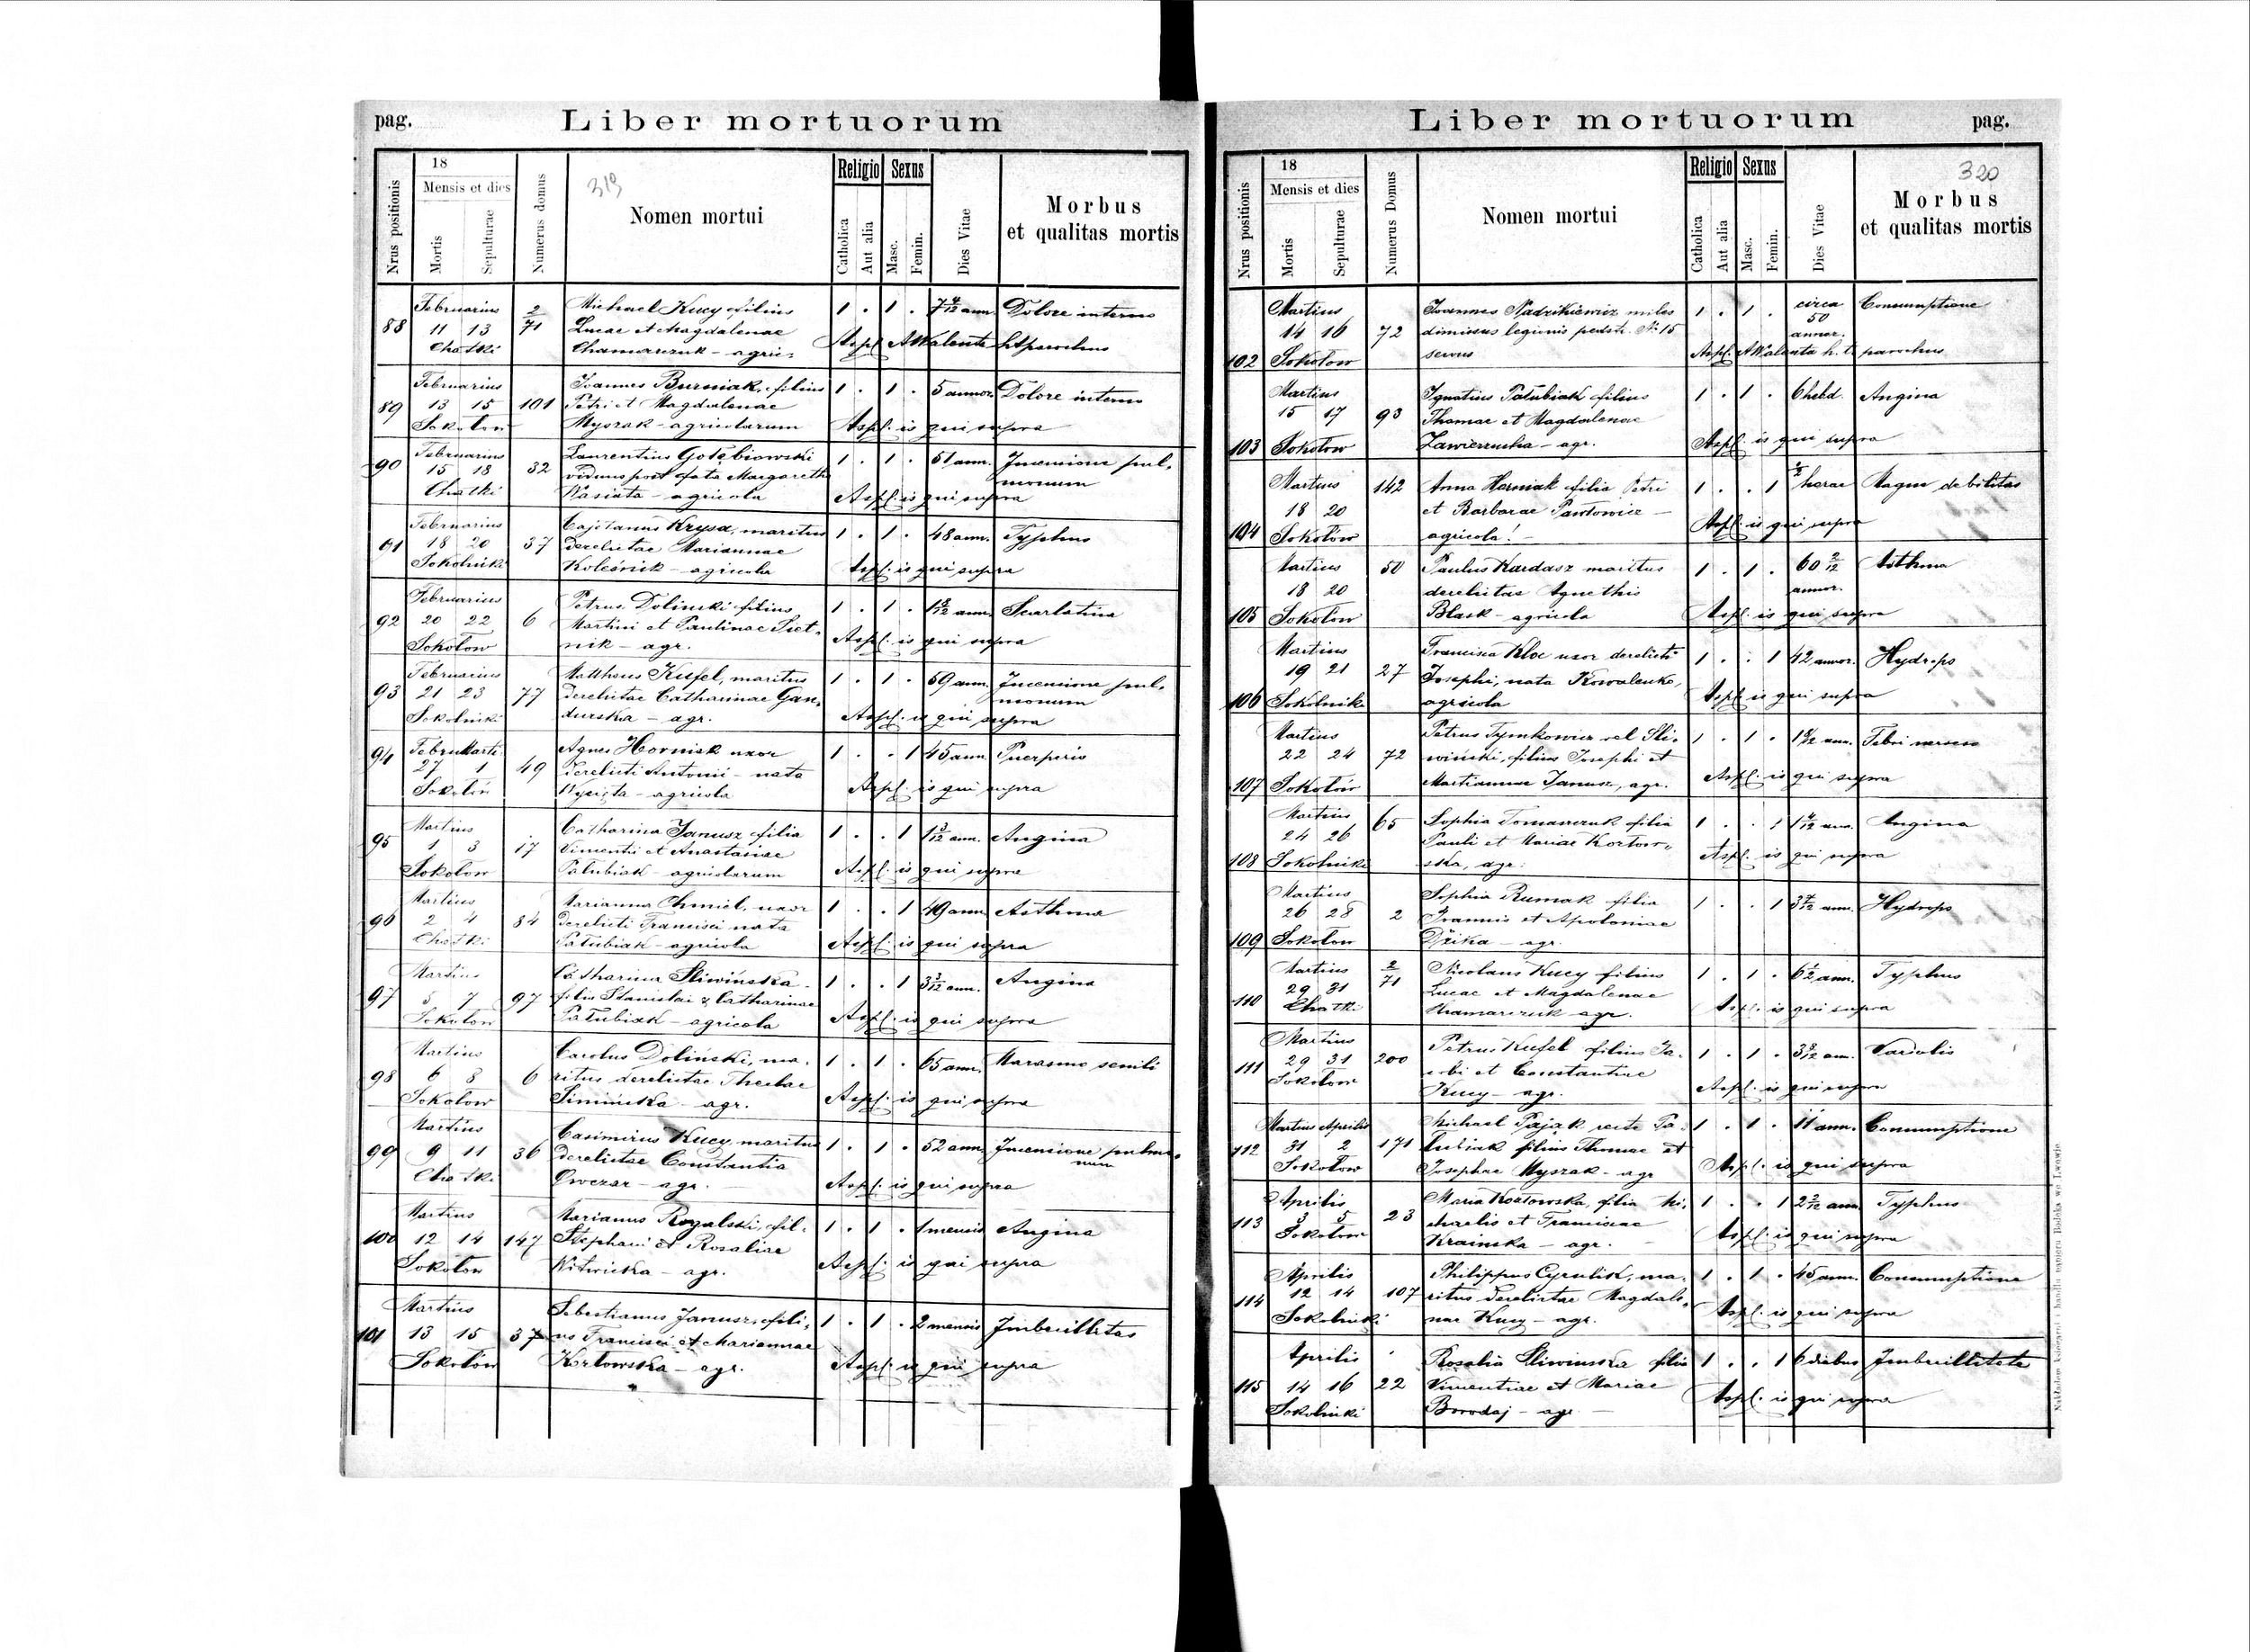 pag.
Liber mortuorum
18
Mensis et dies
Religio Sexus
319
Nrus positionis
Mortis
Sepulturae
Numerus domus
Nomen mortui
Catholica
Aut alia
Masc.
Femin.
Dies Vitae
Morbus
et qualitas mortis
Februarius 2 Michael Kucy filius 1 . 1 . 7 4/12 ann. Dolore interno
88 11 13 71 Lucae et Magdalenae
Chatki Chamarczuk - agric: Aspl. A Walenta h.t. parochus
Februarius Joannes Burniak, filius 1 . 1 . 5 annor. Dolore interno
89 13 15 101 Petri et Magdalenae
Sokołow Myszak - agricolarum Aspl. is qui supra
90 Februarius Laurentius Gołębiowski 1 . 1 . 51 ann. Incensione pul-
15 18 32 viduus post fata Margareth monum
Chatki Wasiuta - agricola Aspl. is qui supra
Februarius Cajetanus Krysa, maritus 1 . 1 . 48 ann. Typhus
91 18 20 37 derelictae Mariannae
Sokolniki Koleśnik - agricola Aspl. is qui supra
Februarius Petrus Dolinski filius 1 . 1 . 1 8/12 ann. Scarlatina
92 20 22 6 Martini et Paulinae Piet-
Sokołow nik - agr. Aspl. is qui supra
Februarius Mattheus Kufel, maritus 1 . 1 . 69 ann. Incensione pul-
93 21 23 77 derelictae Catharinae Gan- monum
Sokolniki durska - agr. Aspl. is qui supra
94 Februa Marti Agnes Horniak uxor 1 . . 1 45 ann. Puerperio
27 1 49 derelicti Antonii - nata
Sokołów agricola Aspl. is qui supra
Martius Catharina Janusz filia 1 . . 1 1 3/12 ann. Angina
95 1 3 17 Vincentii et Anastasiae
Sokołow Pałubiak - agricolarum Aspl. is qui supra
Martius Marianna Chmiel, uxor 1 . . 1 49 ann. Asthma
96 2 4 84 derelicti Francisci nata
Chatki Pałubiak - agricola Aspl. is qui supra
Martius Catharina Sliwińska 1 . . 1 3 3/12 ann. Angina
97 5 7 97 filia Stanislai & Catharinae
Sokołow Pałubiak - agricola Aspl. is qui supra
Martius Carolus Doliński, ma- 1 . 1 . 65 ann. Marasmo senili
98 6 8 6 ritus derelictae Theclae
Sokołow agr. Aspl. is qui supra
Martius Casimirus Kucy, maritus 1 . 1 . 52 ann. Incensione pulmo-
99 9 11 36 derelictae Constantia num
Chatki Owczar - agr. Aspl. is qui supra
Martius Marianus Rogalski, fil- 1 . 1 . 1 mensis Angina
100 12 14 147 Stephani et Rosaliae
Sokołow Witwicka - agr. Aspl. is qui supra
Martius Sebastianus Janusz, fili- 1 . 1 . 2 mensis Imbecillitas
101 13 15 37 us Francisci et Mariannae
Sokołów Kozłowska - agr. Aspl. is qui supra
Liber mortuorum
pag.
18
Mensis et dies
Religio Sexus
320
Nrus positionis
Mortis
Sepulturae
Numerus Domus
Nomen mortui
Catholica
Aut alia
Masc.
Femin.
Dies Vitae
Morbus
et qualitas mortis
Martius Joannes Nadzikiewicz miles 1 . 1 . circa Consumptione
14 16 72 dimissus legionis pedest. No 15 50 annor.
102 Sokołow servus Aspl. A Walenta h. t. parochus
Martius Ignatius Pałubiak filius 1 . 1 . 6 hebd. Angina
15 17 93 Thomae et Magdalenae
103 Sokołow agr. Aspl. is qui supra
Martius 142 Anna Horniak filia Petri 1 . . 1 1/2 horae Magna debilitas
18 20 et Barbarae Pawłowicz -
104 Sokołów agricola! - Aspl. is qui supra
Martius 50 Paulus Kardasz maritus 1 . 1 . 60 2/12 Asthma
18 20 derelictae Agnethis annor.
105 Sokołow Błask - agricola Aspl. is qui supra
Martius Francisca Kloc uxor derelicti 1 . . 1 42 annor. Hydrops
19 21 27 Josephi, nata Kowalenko,
106 Sokolniki agricola Aspl. is qui supra
Martius Petrus Tymkowicz vel Sli- 1 . 1 . ann. Febri
22 24 72 wiński, filius Josephi et
107 Sokołów Mariannae Janusz, agr. Aspl. is qui supra
Martius Sophia Tomaszczuk filia 1 . . 1 1 4/12 ann. Angina
24 26 65 Pauli et Mariae Kozłow-
108 Sokolniki ska, agr. Aspl. is qui supra
Martius Sophia Rumak filia 1 . . 1 ann. Hydrops
26 28 2 Joannis et Apoloniae
109 Sokołow Dzika - agr.
Martius 2 Nicolaus Kucy filius 1 . 1 . 6 1/2 ann. Typhus
29 31 71 Lucae et Magdalenae
110 Chatki Hramarczuk agr. Aspl. is qui supra
Martius Petrus Kufel filius Ja- 1 . 1 . ann. Variolis
111 29 31 200 cobi et Constantiae
Sokołow Kucy - agr. Aspl. is qui supra
Martius Aprilis Michael Pająk recte Pa- 1 . 1 . 11 ann. Consumptione
112 31 2 171 łubiak filius Thomae et
Sokołow Josephae Myszak - agr Aspl. is qui supra
Aprilis Maria Kozłowska, filia Mi- 1 . . 1 2 2/12 ann. Typhus
113 3 5 23 chaelis et Franciscae
Sokołow Krainska - agr. Aspl. is qui supra
Aprilis Philippus Cyrulik, ma- 1 . 1 . 45 ann. Consumptione
114 12 14 107 ritus derelictae Magdale-
Sokolniki nae Kucy - agr. Aspl. is qui supra
Aprilis Rosalia Sliwinska filia 1 . . 1 6 diebus Imbecillitate
115 14 16 22 Vincentiae et Mariae
Sokolniki Borodaj - agr Aspl. is qui supra